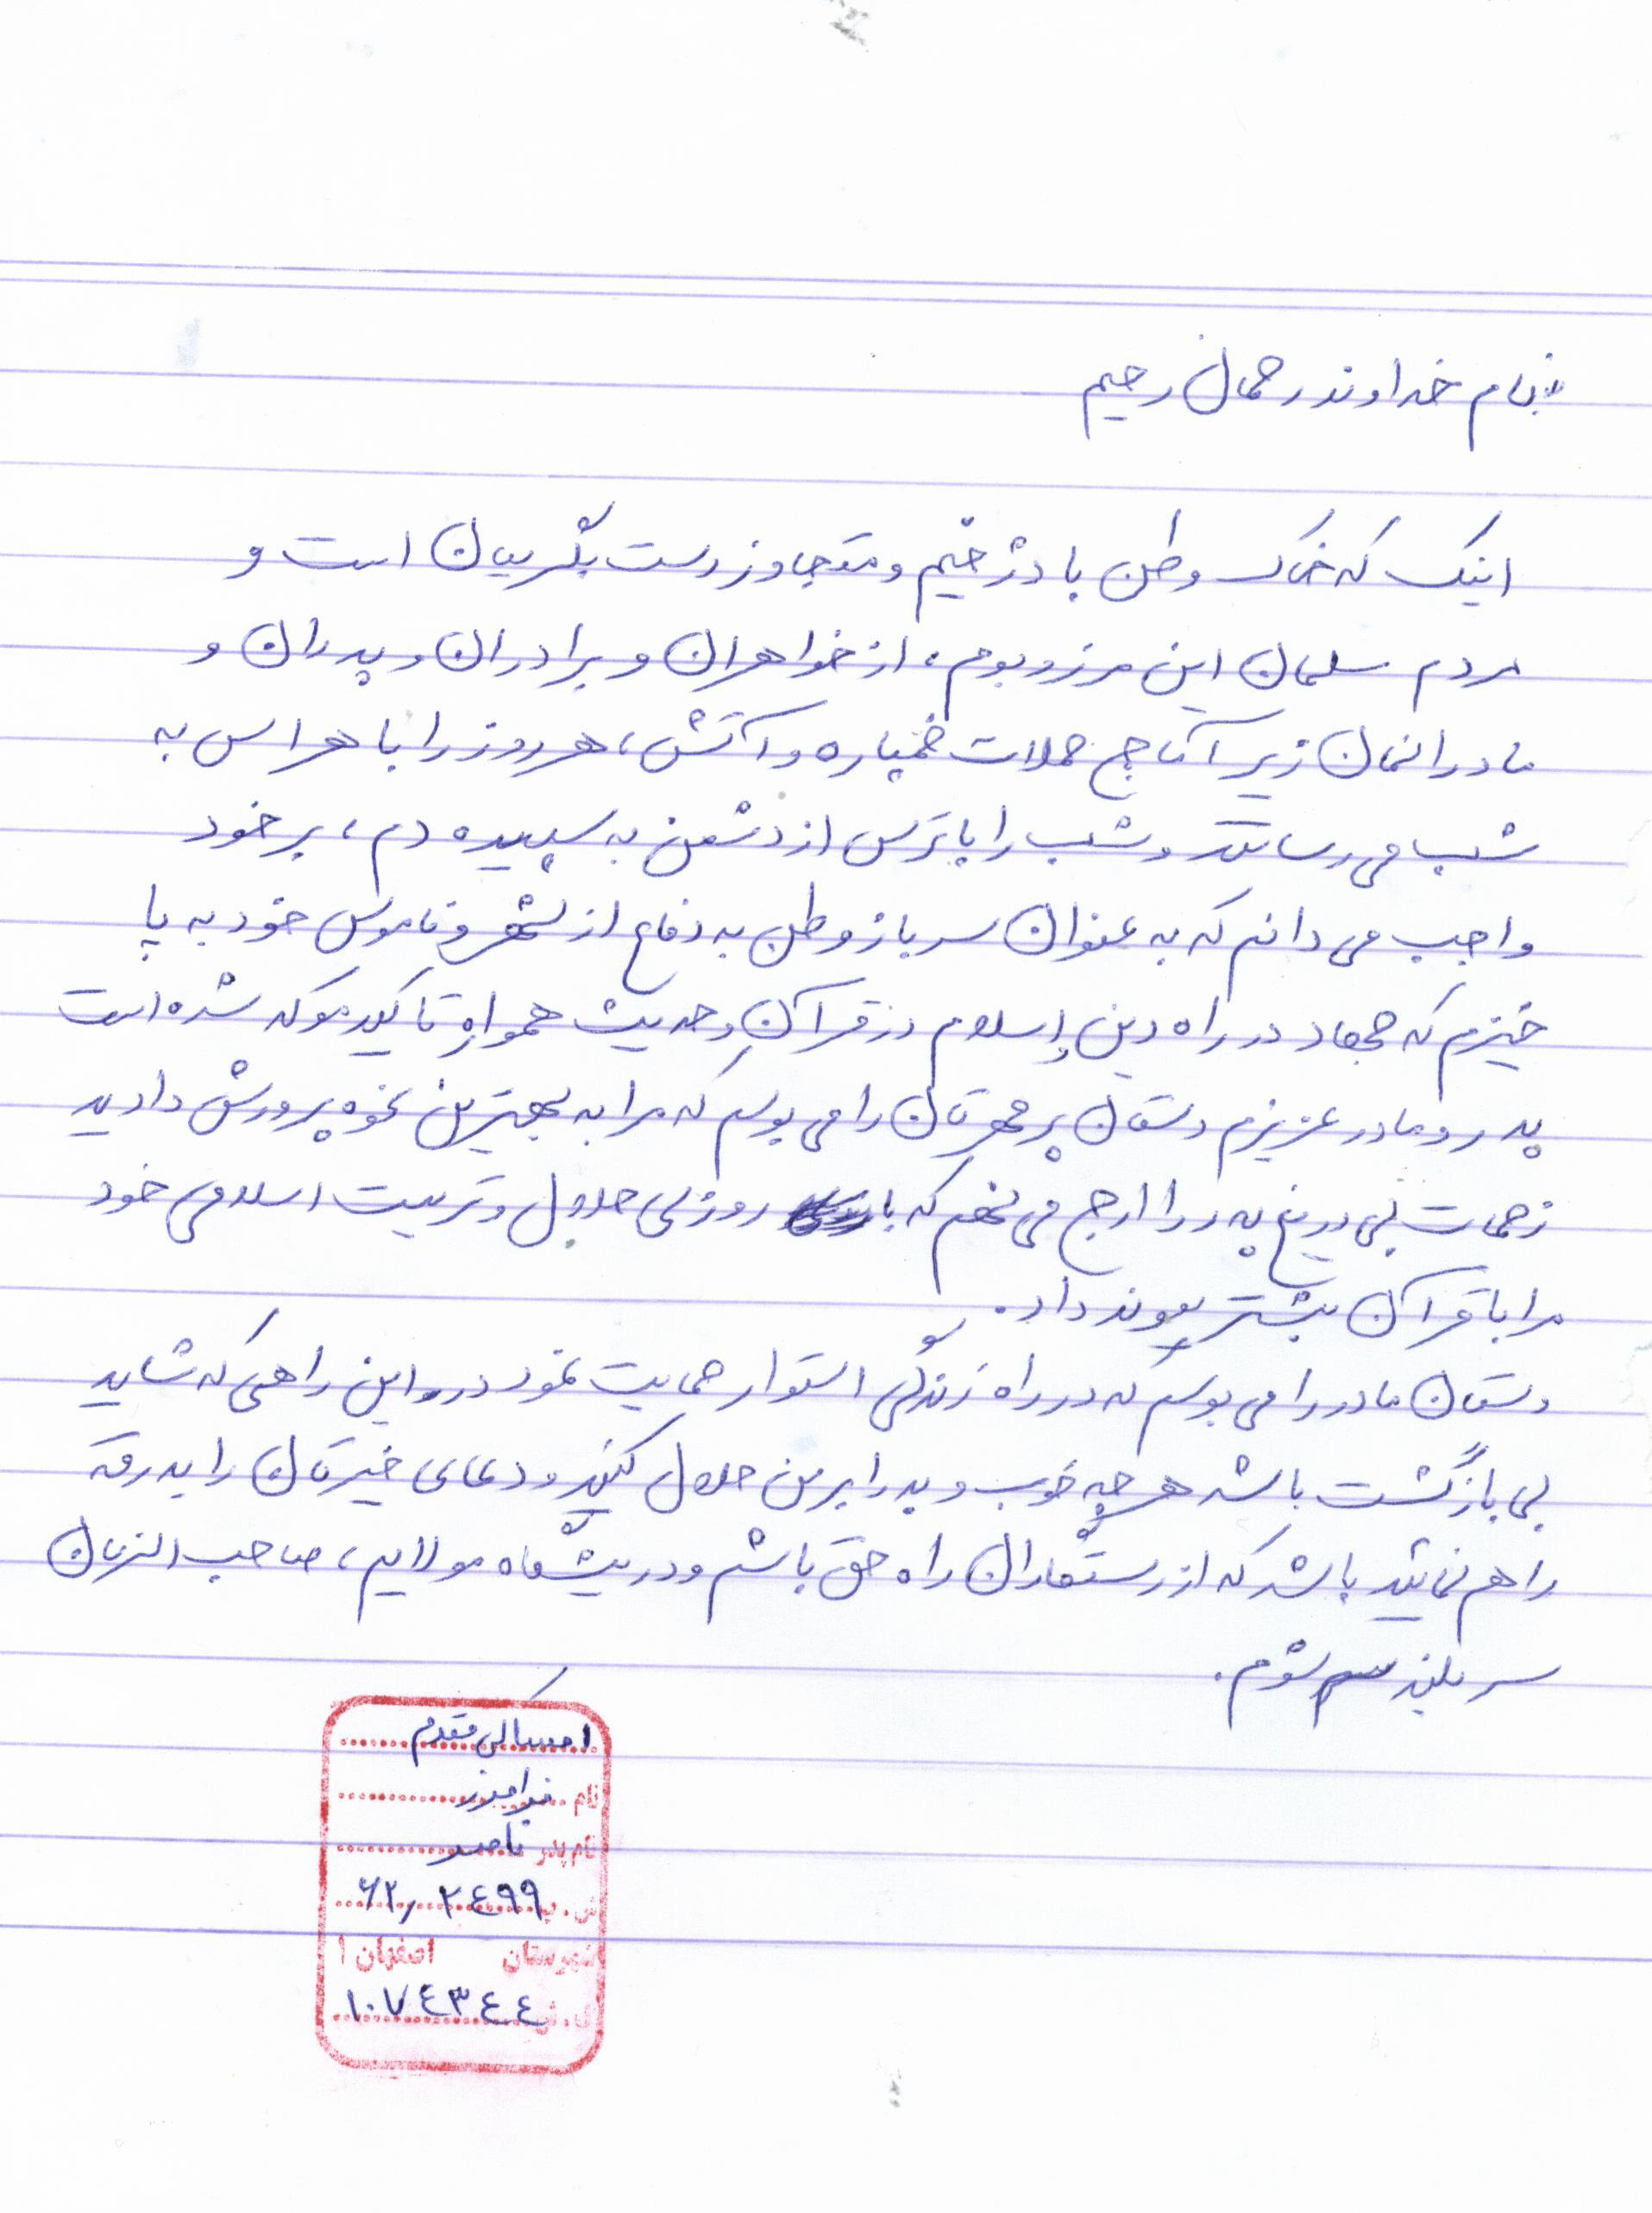 بنام خداوند رحمان رحیم
اینک که خاک وطن با دژخیم و متجاوز دست بگریبان است و
مردم مسلمان این مرز و بوم، از خواهران و برادران و پدران و
مادرانمان زیر آماج حملات خمپاره و آتش، هر روز را با هراس به
شب می رسانند و شب را با ترس از دشمن به سپیده دم، بر خود
واجب می دانم که به عنوان سرباز وطن به دفاع از شهر و ناموس خود به پا
خیزم که جهاد در راه دین اسلام در قرآن و حدیث همواره تاکید موکد شده است
پدر و مادر عزیزم دستان پر مهرتان را می بوسم که مرا به بهترین نحوه پرورش دادید
زحمات بی دریغ پدر را ارج می نهم که با روزی حلال و تربیت اسلامی خود
مرا با قرآن بیشتر پیوند داد.
دستان مادر را می بوسم که در راه زندگی استوار حمایت نمود در این راهی که شاید
بی بازگشت باشد هر چه خوب و بد را بر من حلال کنید و دعای خیرتان را بدرقه
راهم نمائید باشد که از رستگاران راه حق باشم و در پیشگاه مولایم، صاحب الزمان
سربلند شوم.
مقدم
نام فرامرز
نام پدر ناصر
ش. پ ۶۲٫۲٤۹۹
شهرستان اصفهان ۱
۱۰۷٤۳٤٤